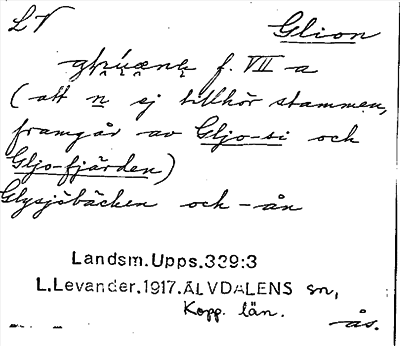 LV Glion
f. VII -a
(att n ej tillhör stammen,
framgår av Gljo-si och
Gljo-fjärden)
Glysjöbäcken och -ån
Landsm.Upps.329:3
L.Levander.1917.ÄLVDALENS sn,
Kopp. län.
ås.